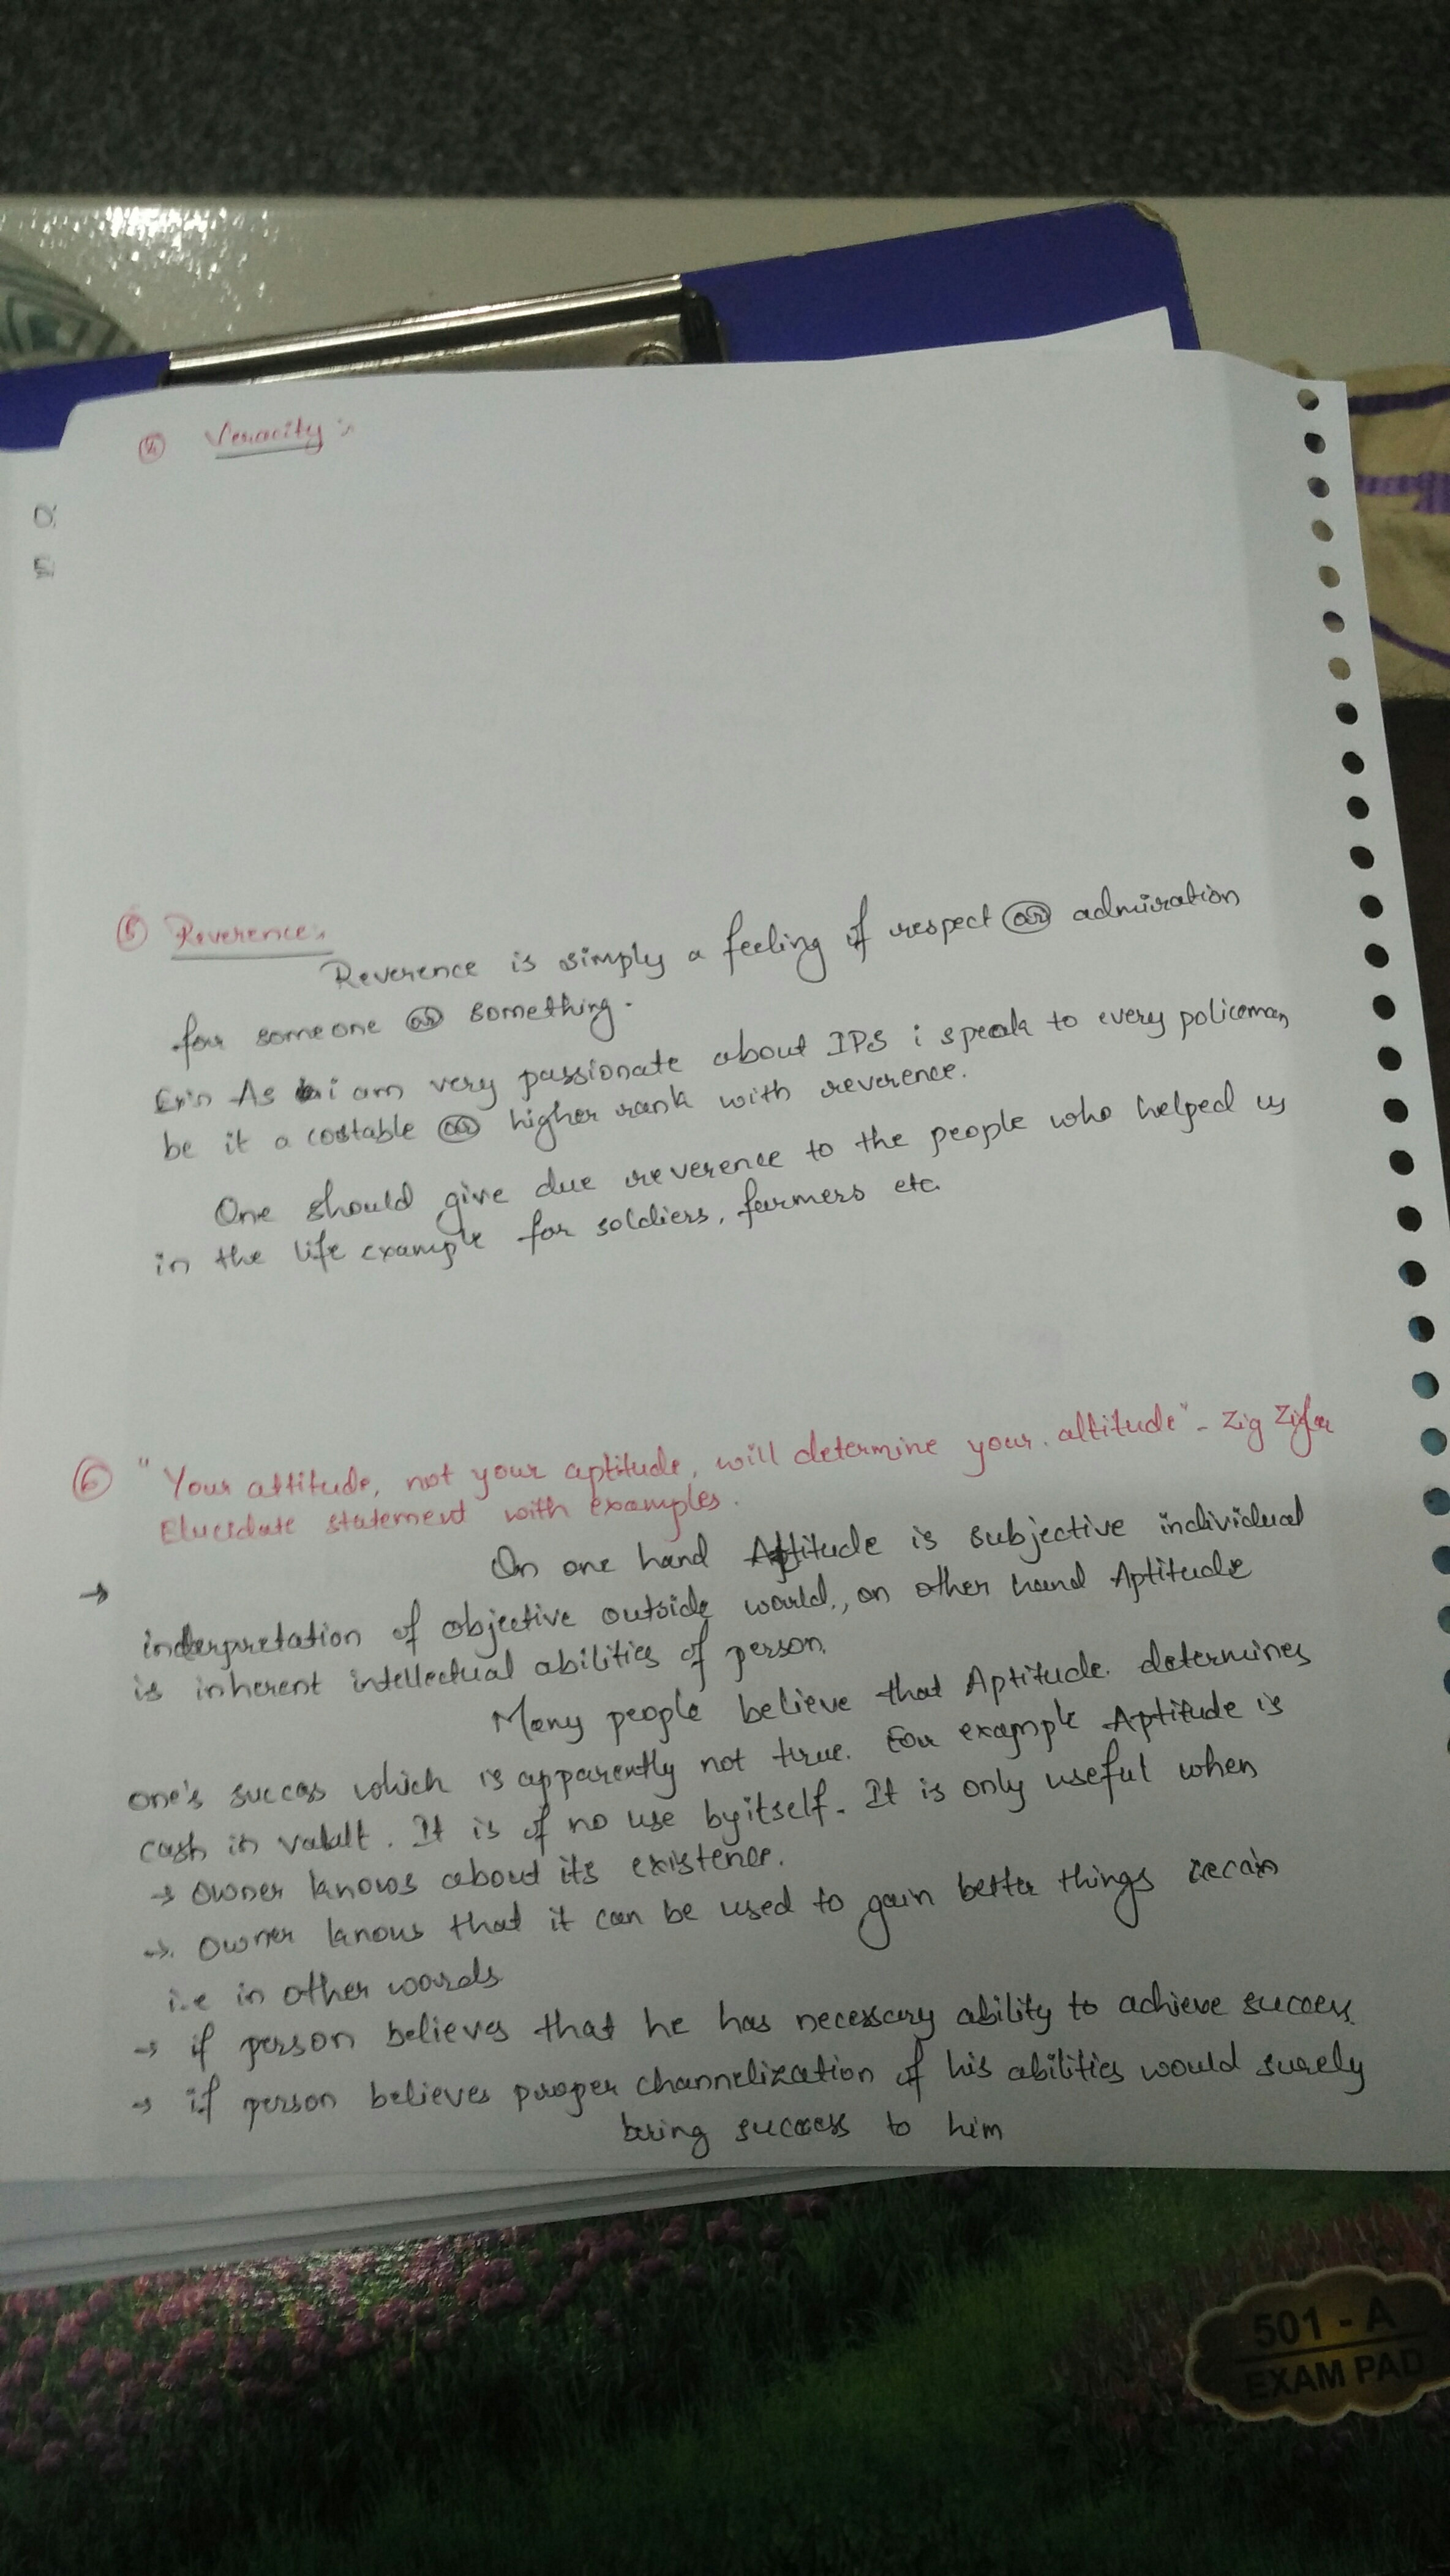 ④ Veracity :-
⑤ Reverence:-
Reverence is simply a feeling of respect or admiration
for someone or something.
Ex:- As i am very passionate about IPS i speak to every policeman
be it a costable or higher rank with reverence.
One should give due reverence to the people who helped us
in the life example for soldiers, farmers etc.
⑥ "Your attitude, not your aptitude, will determine your altitude" - Zig
Elucidate statement with examples.
→ On one hand Attitude is subjective individual
interpretation of objective outside world, on other hand Aptitude
is inherent intellectual abilities of person.
Many people believe that Aptitude determines
one's success which is apparently not true. For example Aptitude is
cash in It is of no use by itself. It is only useful when
→ Owner knows about its existence.
→ Owner knows that it can be used to gain better things
i.e in other words
→ if person believes that he has necessary ability to achieve success
→ if person believes proper channelization of his abilities would surely
bring success to him
501 - A
EXAM PAD